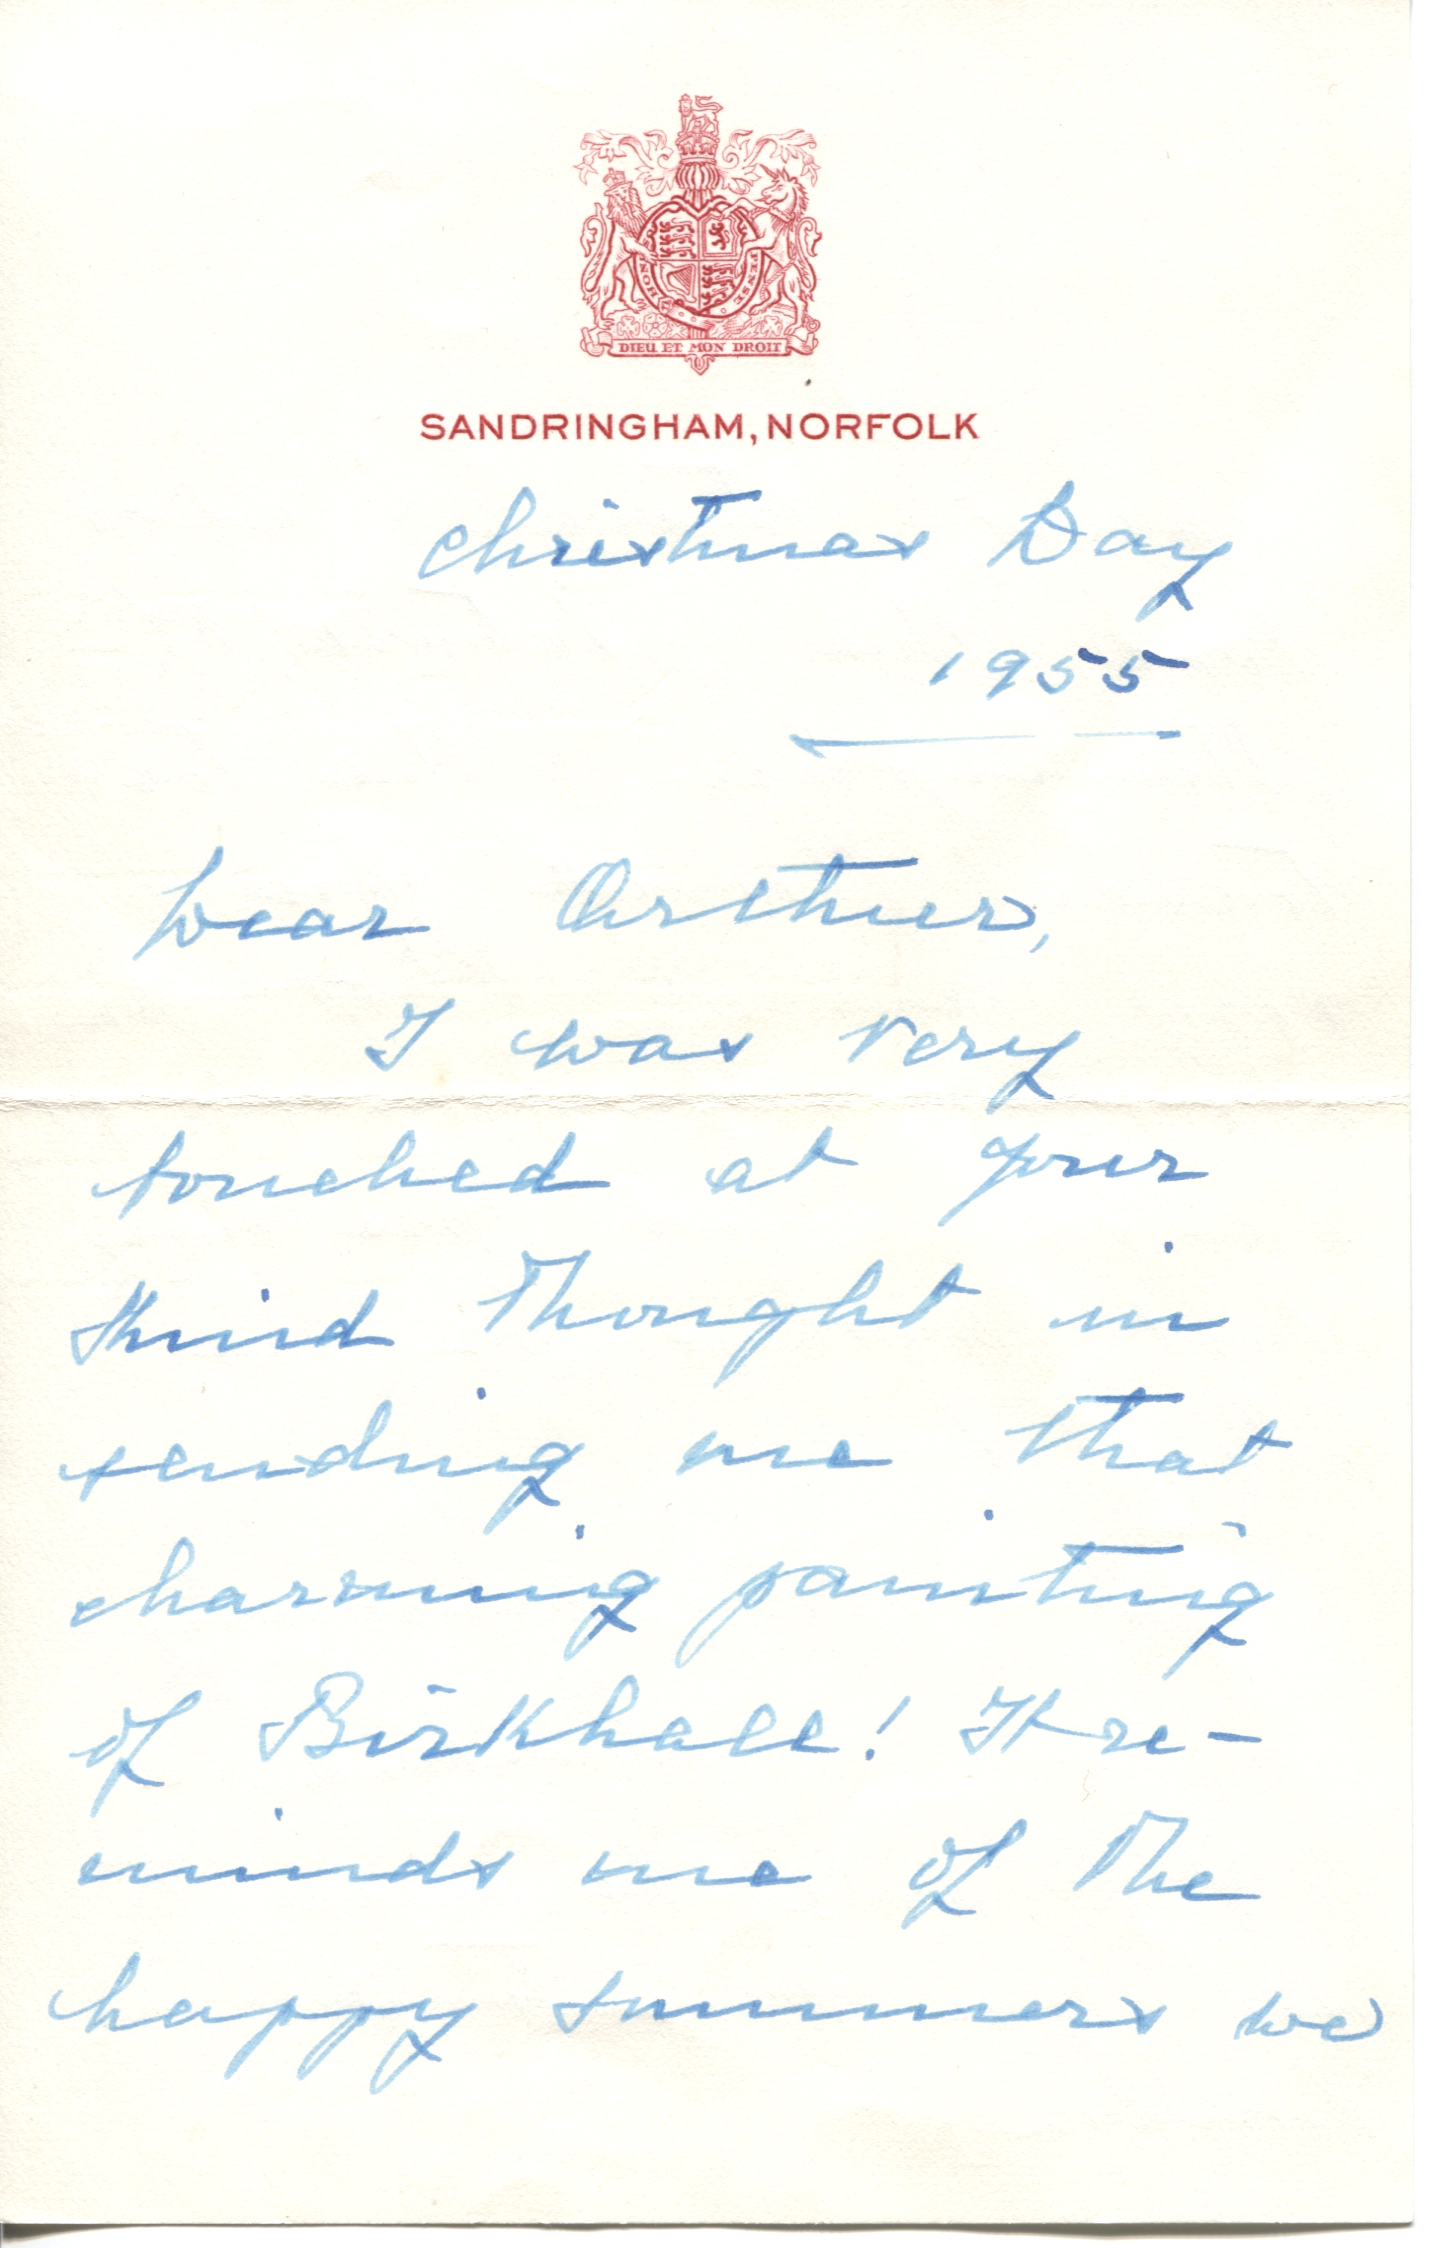 HONI
PENSE
DIEU ET MON DROIT
SANDRINGHAM, NORFOLK
Christmas Day
1955
Dear Arthur,
I was very
touched at your
kind thought in
sending me that
charming painting
of Birkhall! It re-
minds me of the
happy summers we